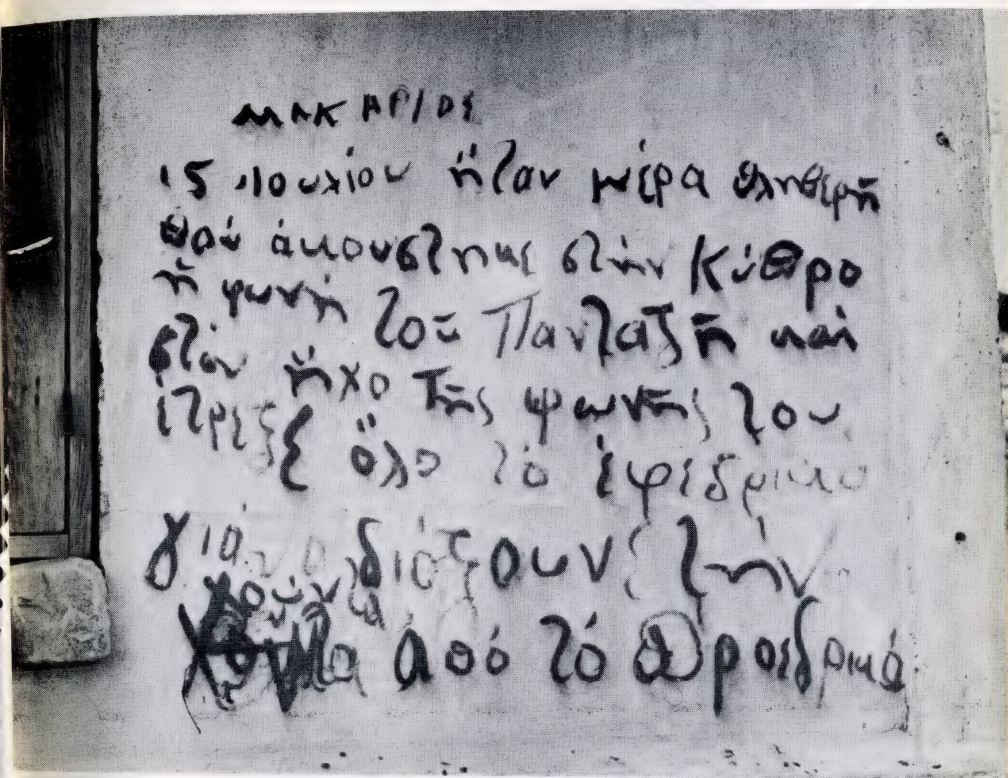 ΜΑΚΑΡΙΟΣ
15 Ιουλίου ἤταν μέρα θληβερῆ
ποὺ ἀκούστηκε στὴν Κύπρο
ἡ φωνὴ τοῦ Πανταζῆ καὶ
στὸν ἦχο τῆς φωνῆς του
ἔτρεξε ὅλο τὸ ἐφεδρικὸ
γιὰ νὰ διόξουνε τὴν
ἀπὸ τὸ προεδρικό